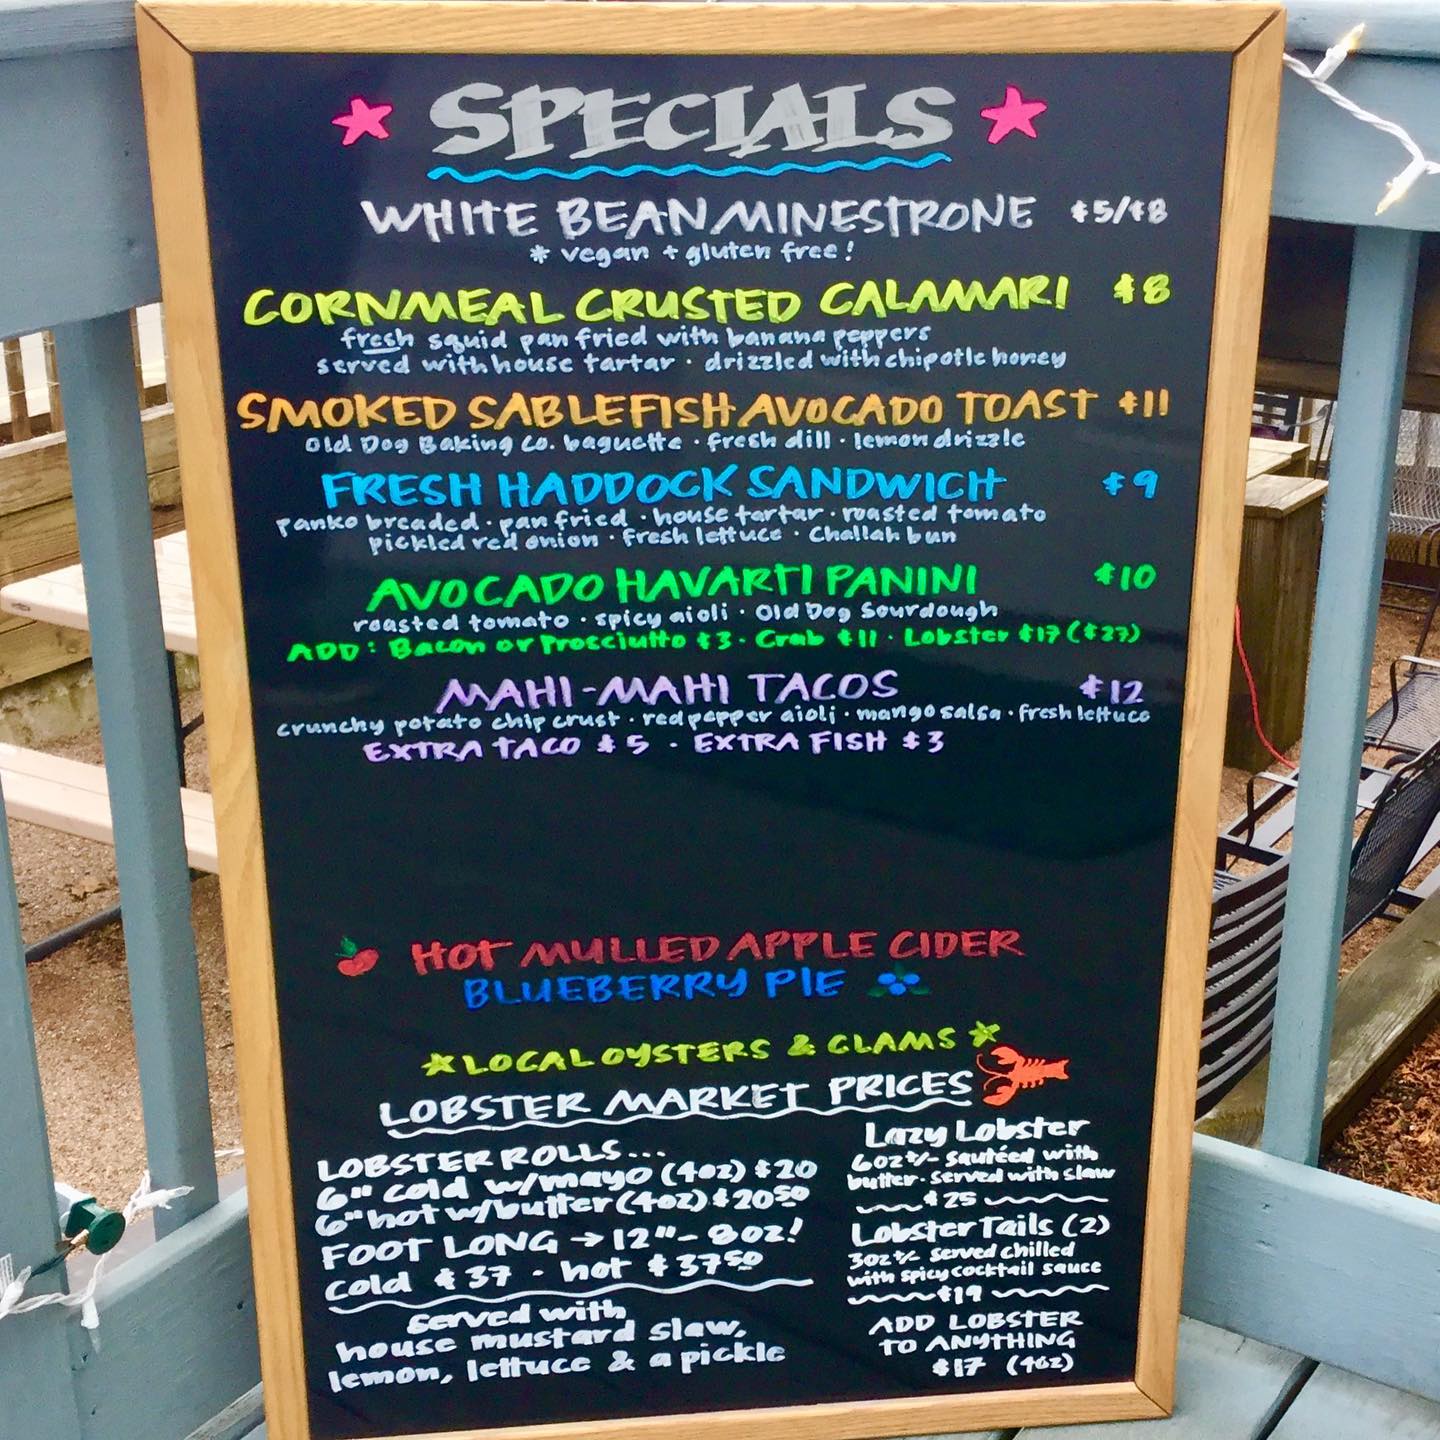 SPECIALS
WHITE BEAN MINESTRONE $5/$8
* vegan + gluten free!
CORNMEAL CRUSTED CALAMARI $8
fresh squid pan fried with banana peppers
served with house tartar · drizzled with chipotle honey
SMOKED SABLEFISH AVOCADO TOAST $11
Old Dog Baking Co. baguette · fresh dill · lemon drizzle
FRESH HADDOCK SANDWICH $9
panko breaded · pan fried · house tartar · roasted tomato
pickled red onion · fresh lettuce · Challah bun
AVOCADO HAVARTI PANINI $10
roasted tomato · spicy aioli · Old Dog Sourdough
ADD: Bacon or Prosciutto $3 · Crab $11 · Lobster $17 ($27)
MAHI-MAHI TACOS $12
crunchy potato chip crust · red pepper aioli · mango salsa · fresh lettuce
EXTRA TACO $5 · EXTRA FISH $3
HOT MULLED APPLE CIDER
BLUEBERRY PIE
LOCAL OYSTERS & CLAMS
LOBSTER MARKET PRICES
LOBSTER ROLLS...
6" cold w/mayo (4oz) $20
6" hot w/butter (4oz) $20.50
FOOT LONG → 12" - 8oz!
cold $37 - hot $37.50
served with
house mustard slaw,
lemon, lettuce & a pickle
Lazy Lobster
6oz +/- sautéed with
butter · served with slaw
$25
Lobster Tails (2)
3oz +/- served chilled
with spicy cocktail sauce
$19
ADD LOBSTER
TO ANYTHING
$17 (4oz)